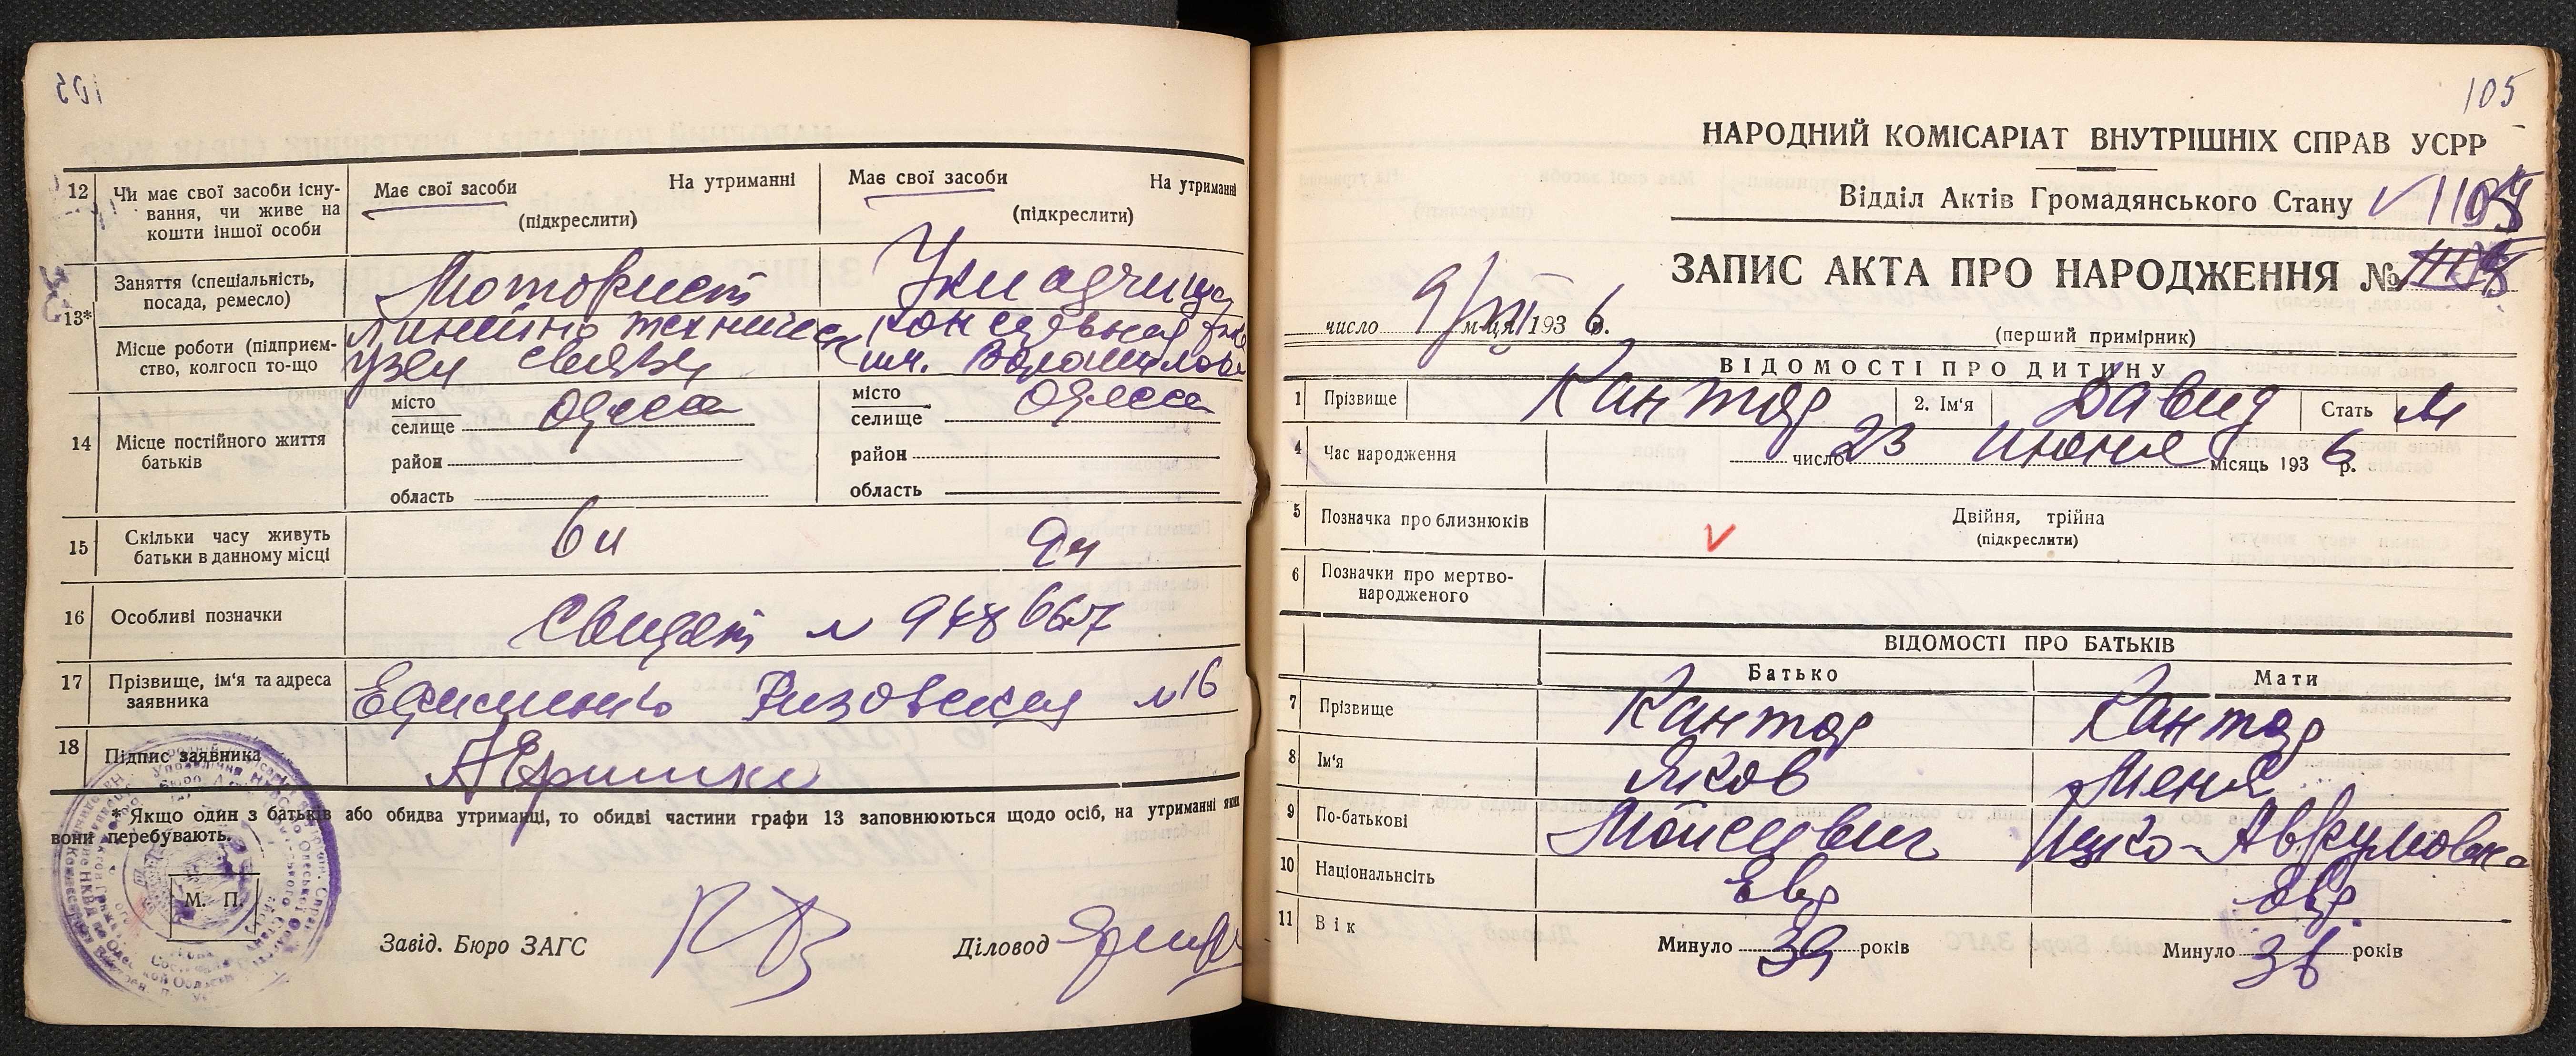 12 Чи має свої засоби існу-
вання, чи живе на
кошти іншої особи
Має свої засоби На утриманні
(підкреслити)
Має свої засоби На утриманні
(підкреслити)
13*
Заняття (спеціальність,
посада, ремесло)
Моторист
Укладчица
Місце роботи (підприєм-
ство, колгосп то-що
линейно техническ
узел связи
консервная
им. Ворошилова
14 Місце постійного життя
батьків
місто
селище Одесса
район
область
місто
селище Одесса
район
область
15 Скільки часу живуть
батьки в данному місці
16 Особливі позначки
Свидет № 948667
17 Прізвище, ім'я та адреса
заявника
Ризовская №16
18 Підпис заявника
* Якщо один з батьків або обидва утриманці, то обидві частини графи 13 заповнюються щодо осіб, на утриманні яких
вони перебувають.
М. П.
Завід. Бюро ЗАГС
Діловод
105
НАРОДНИЙ КОМІСАРІАТ ВНУТРІШНІХ СПРАВ УСРР
Відділ Актів Громадянського Стану
ЗАПИС АКТА ПРО НАРОДЖЕННЯ №
число 9/VII м-ця 1936 р.
(перший примірник)
ВІДОМОСТІ ПРО ДИТИНУ
1 Прізвище Кантор 2. Ім'я Давид Стать м
4 Час народження число 23 июня місяць 1936 р.
5 Позначка про близнюків Двійня, трійня
(підкреслити)
6 Позначки про мертво-
народженого
ВІДОМОСТІ ПРО БАТЬКІВ
Батько Мати
7 Прізвище Кантор Кантор
8 Ім'я Яков Меня
9 По-батькові Мойсеевич Ицко-Аврумовна
10 Національнсіть Евр Евр.
11 Вік Минуло 39 років Минуло 36 років